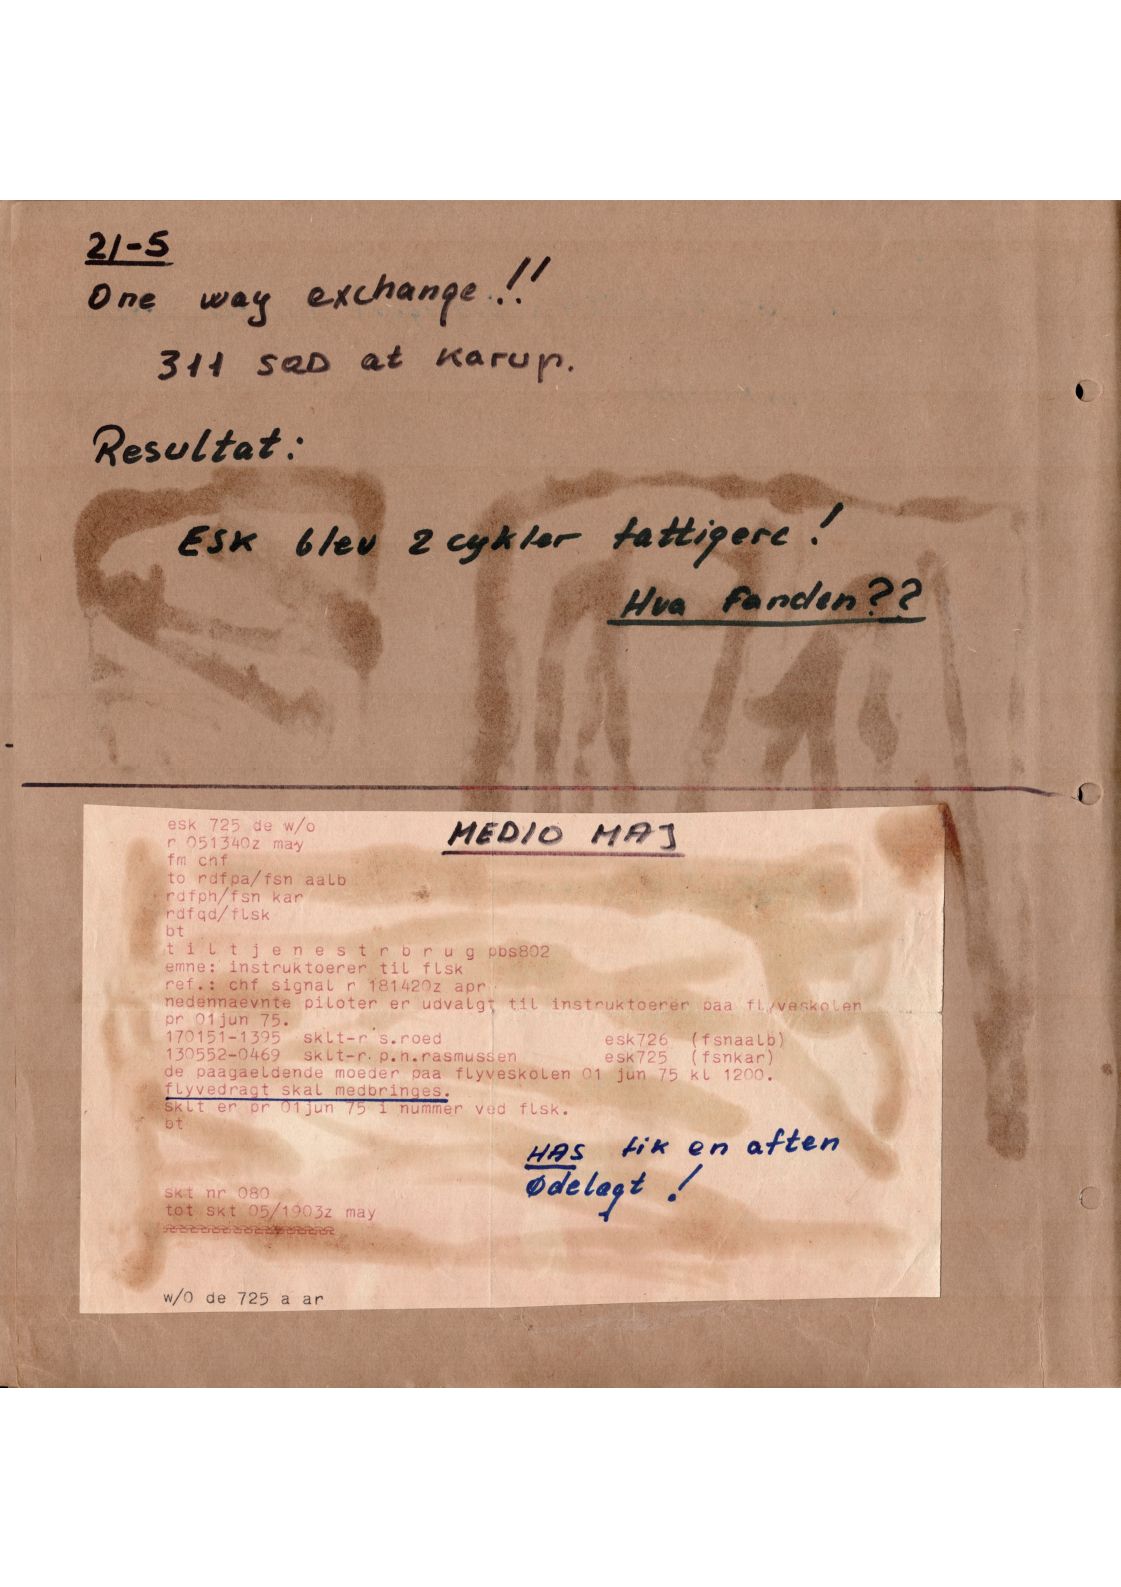 21-5
One way exchange!!
311 SQD at Karup.
Resultat:
ESK blev 2 cykler fattigere!
Hva fanden??
MEDIO MAJ
esk 725 de w/o
r 051340z may
fm chf
to rdfpa/fsn aalb
rdfph/fsn kar
rdfqd/flsk
bt
t i l t j e n e s t r b r u g pbs802
emne: instruktoerer til flsk
ref.: chf signal r 181420z apr
nedennaevnte piloter er udvalgt til instruktoerer paa flyveskolen
pr 01jun 75.
170151-1395 sklt-r s.roed esk726 (fsnaalb)
130552-0469 sklt-r. p.h.rasmussen esk725 (fsnkar)
de paagaeldende moeder paa flyveskolen 01 jun 75 kl 1200.
flyvedragt skal medbringes.
sklt er pr 01jun 75 i nummer ved flsk.
bt
HAS fik en aften
Ødelagt!
skt nr 080
tot skt 05/1903z may
w/o de 725 a ar